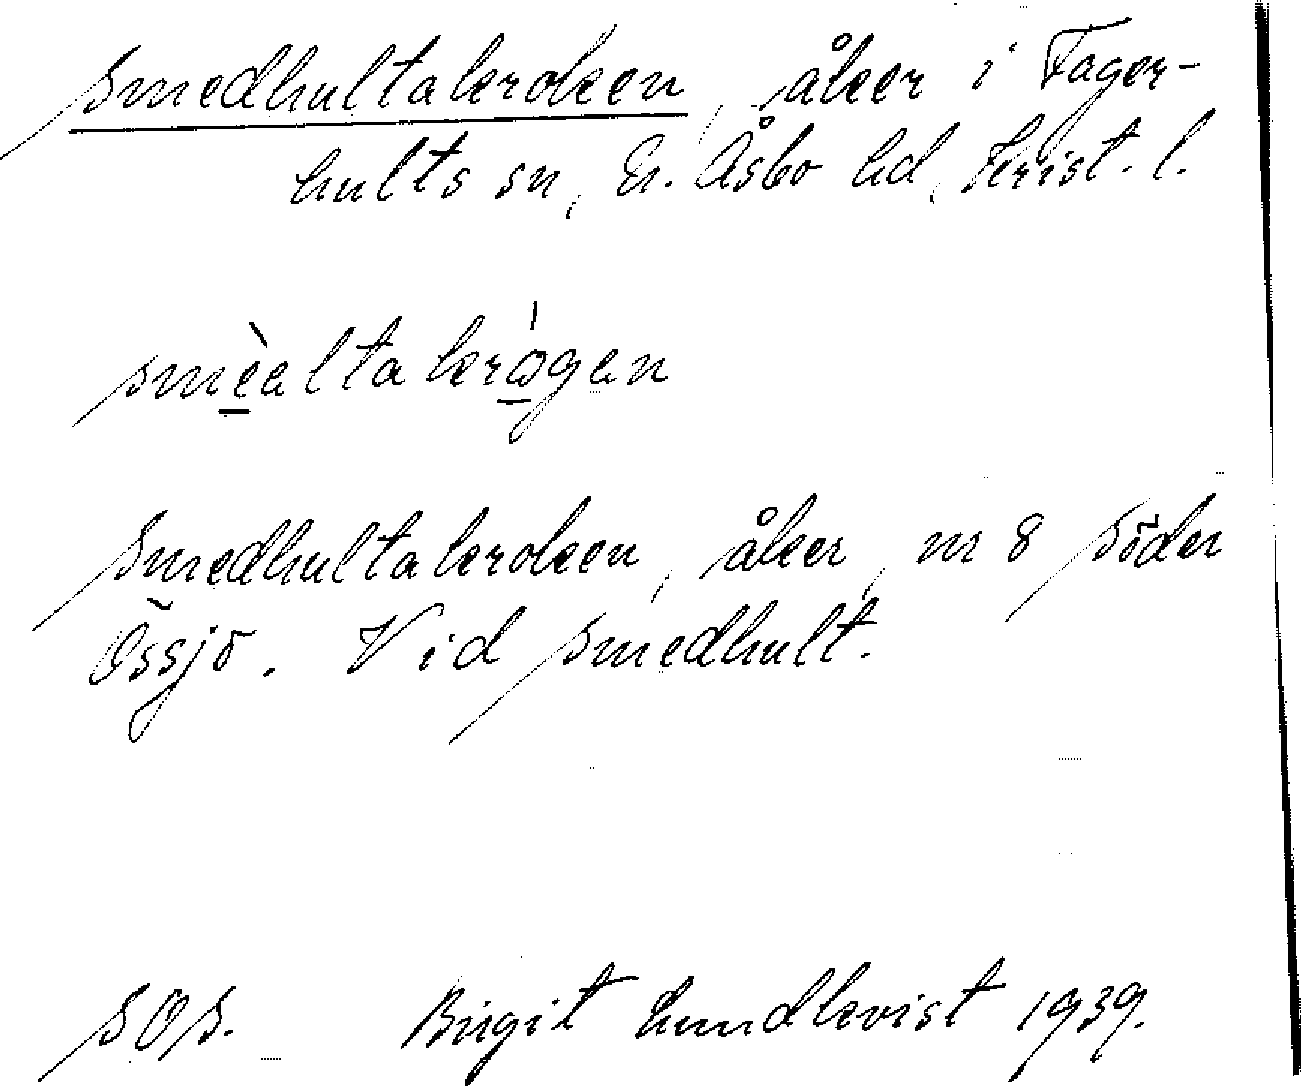 Smedhultakroken, åker i Fager-
hults sn, N. Åsbo hd, Krist. l.
smèəltakrógən
Smedhultakroken, åker, nr 8 Söder
Össjö. Vid Smedhult.
SOS. Birgit Lundkvist 1939.